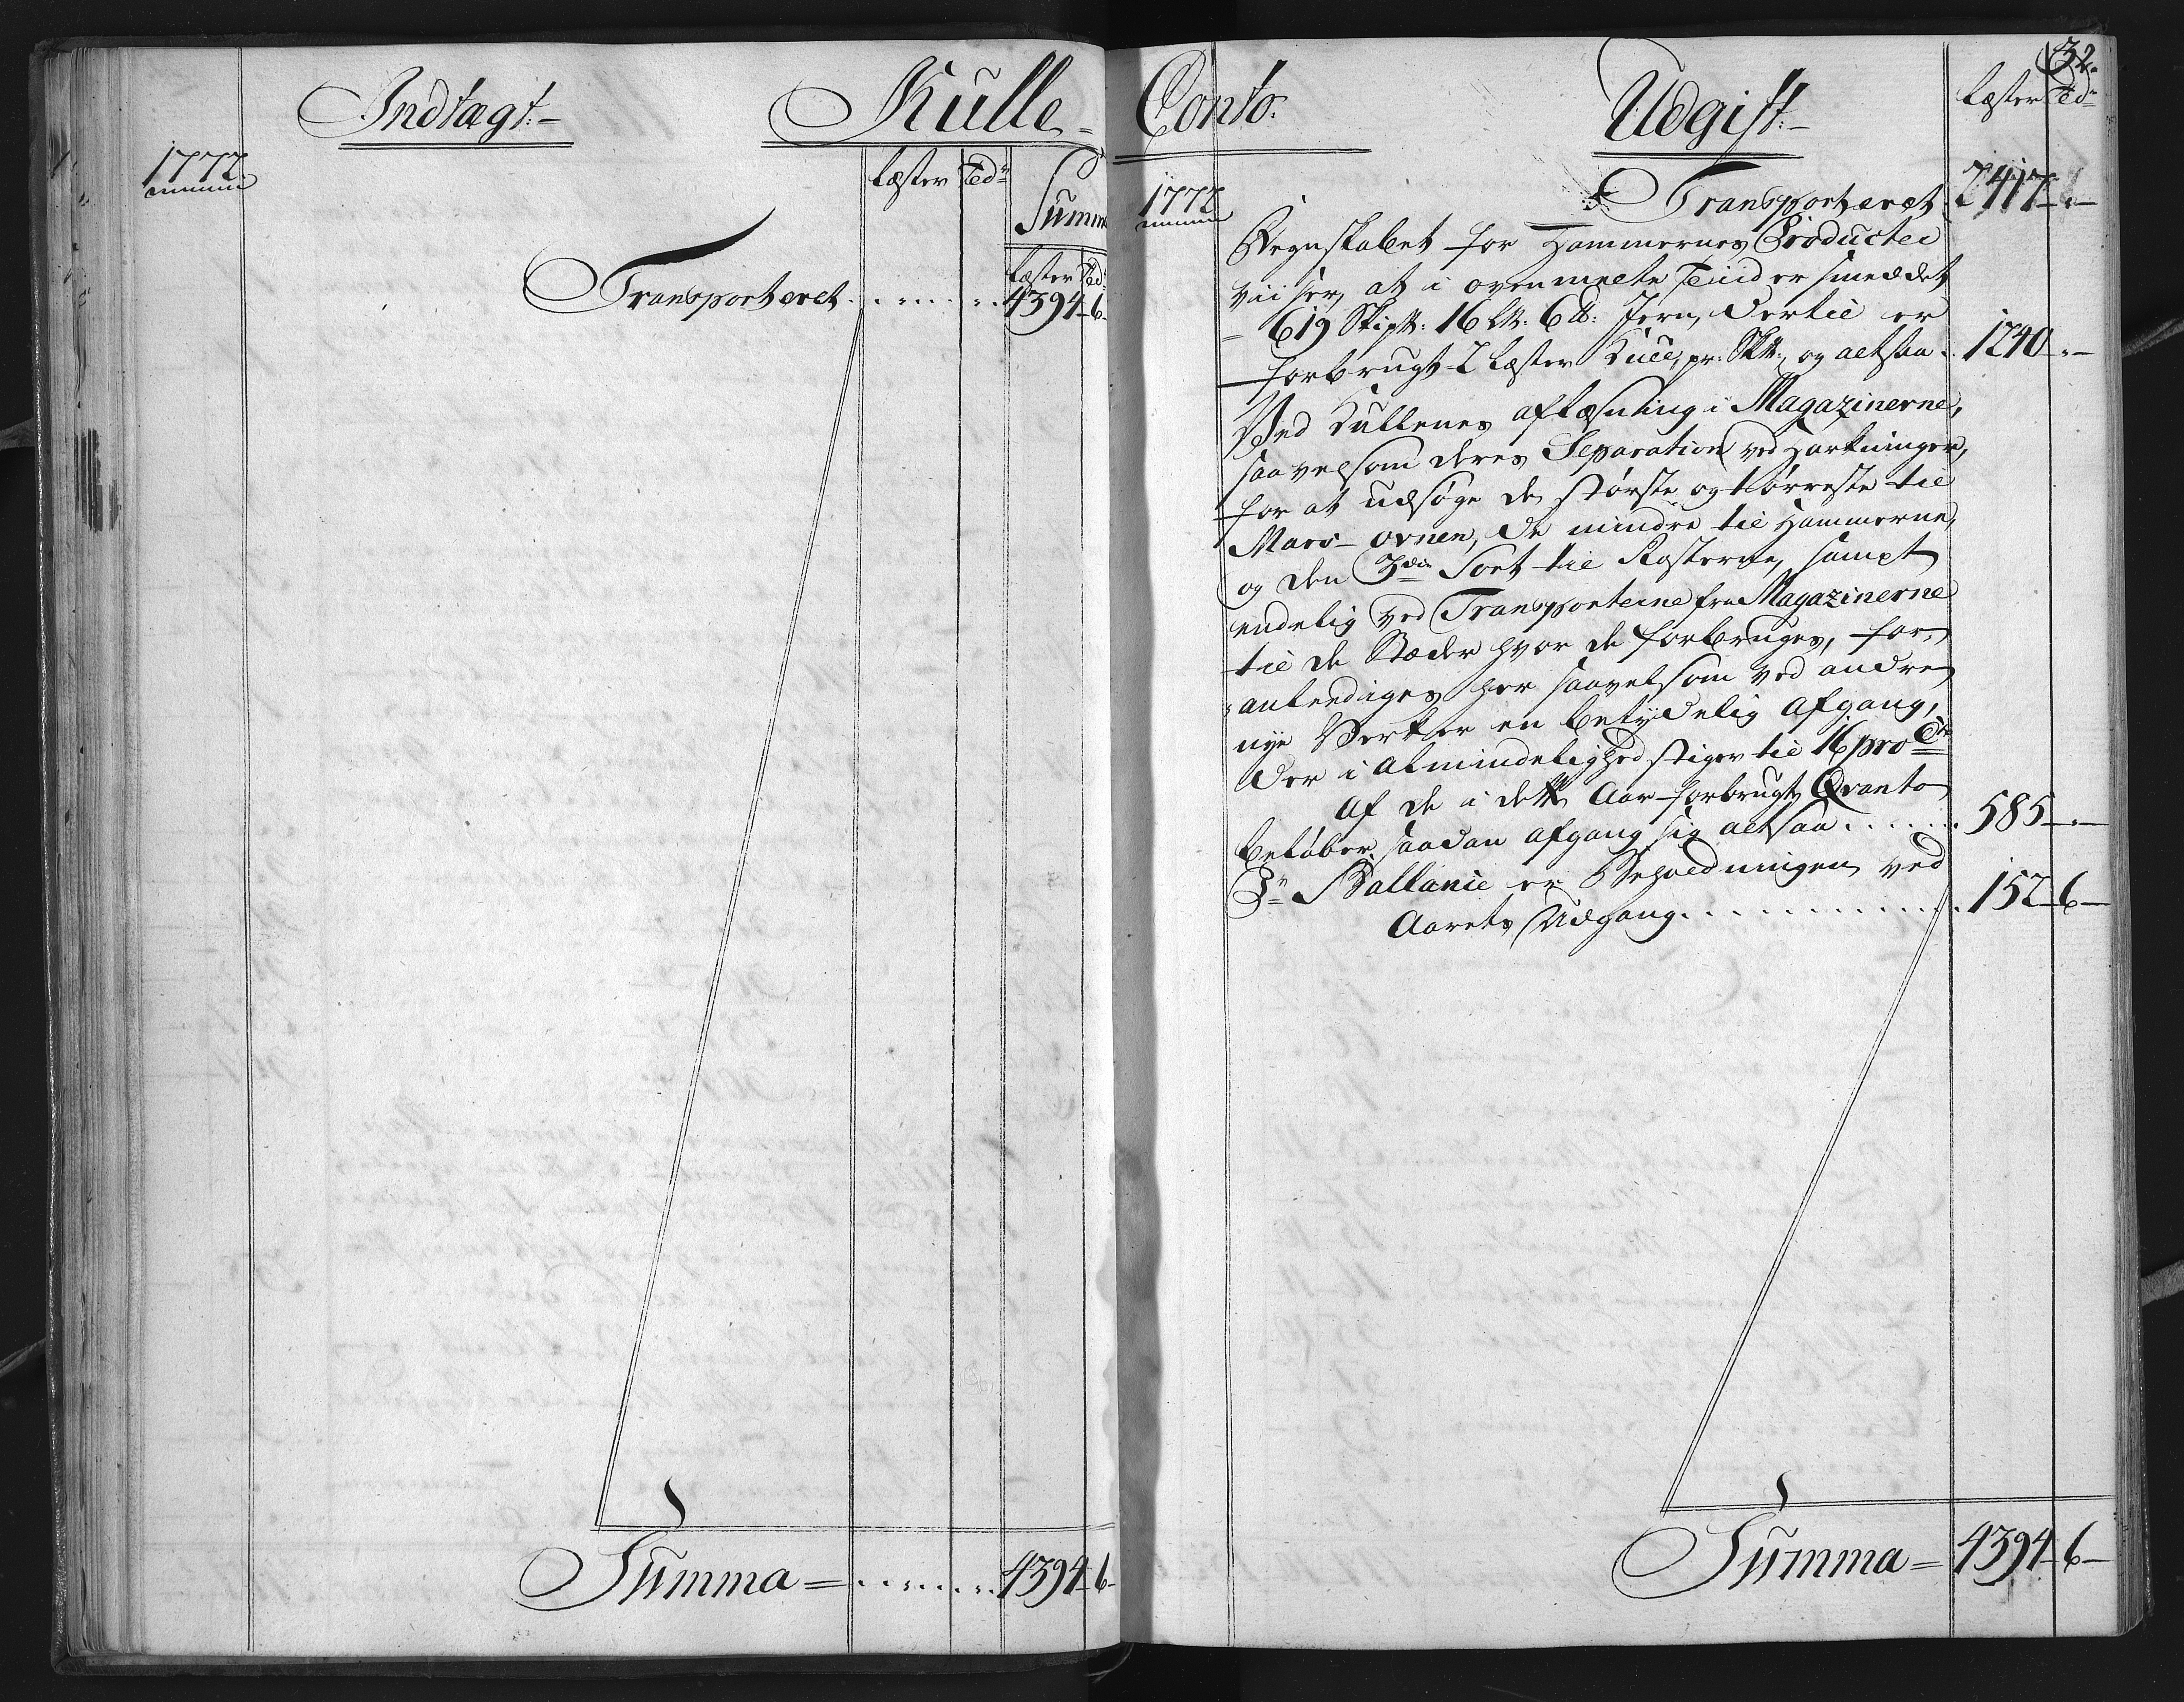 Indtægt:-
Kulle-
1772.
Læster
Tdr
Summa
Læster Tdr
Transporteret
4394-6-
Summa = 4394-6-
32.
Conto.
Udgift:-
Læster Tdr
1772
Transporteret 2417-"-
Regnskabet for Hammernes Producter
viiser, at i ovenmelte Tiid er smeddet
619 Skip℔: 16 L℔: 6 ℔: Jern, dertil er
forbrugt 2 Læster Kull, pr: Sk℔:, og altsaa 1240-"-
Ved Kullenes aflæsning i Magazinerne,
saavelsom deres Separation ved Harkninger,
for at udsøge de største og tørreste til
Mars-ovnen, de mindre til Hammerne,
og den 3die Sort til Rosterne, sampt
endelig ved Transporterne fra Magazinerne
til de Stæder hvor de forbruges, for-
anlediges her saavelsom ved andre
nye Verker en betydelig Afgang,
der i Almindelighed stiger til 16 pro Cto
Af de i dette Aar forbrugte Qvanta
beløber saadan afgang sig altsaa 585-"-
Pr Ballance er Beholdningen ved
Aarets Udgang 152-6-
Summa = 4394-6-